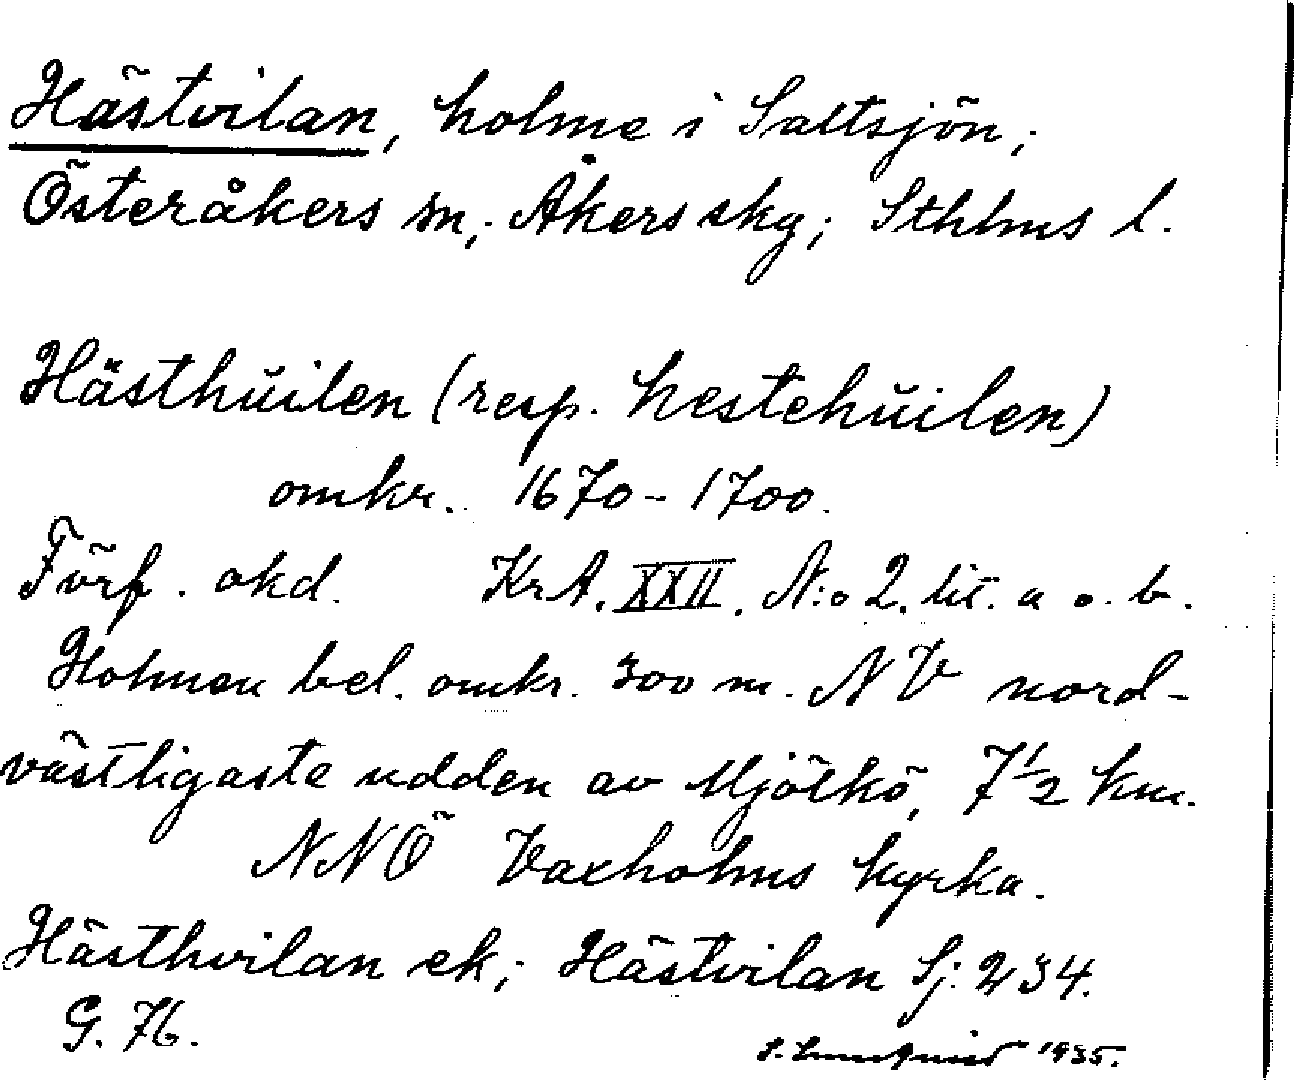 Hästvilan, holme i Saltsjön;
Österåkers sn, Åkers skg; Sthlms l.
Hästhŭilen (resp. hestehŭilen)
omkr. 1670-1700.
Förf. okd. KrA. XXII. N:o 2. lit. a o. b.
Holmen bel. omkr. 300 m. NV nord-
västligaste udden av Mjölkö, 7 1/2 km.
NNÖ Vaxholms kyrka.
Hästhvilan ek; Hästvilan Sj: 234.
G. 76.
1935.